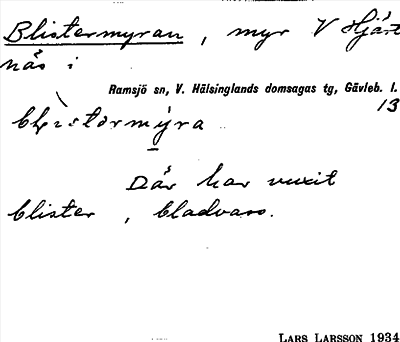 Blistermyran, myr V Hjärt
nås i
Ramsjö sn, V. Hälsinglands domsagas tg, Gävleb. l.
13
blistərmỳra
Där har vuxit
blister, bladvass.
LARS LARSSON 1934